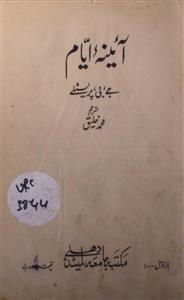 آئینۂ ایام
جے، بی، پریسٹلے
مترجم
محمد خلیق
URC
3844
مکتبہ جامعہ لمیٹڈ دہلی
بار اول ۱۰۰۰
قیمت